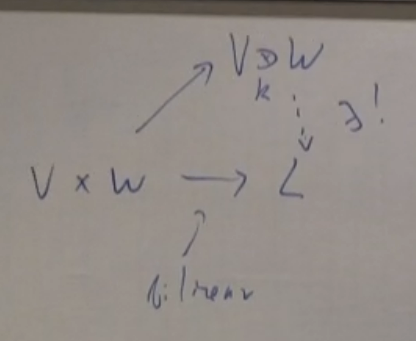 V ⊗ W
k
∃!
V × W → L
bilinear